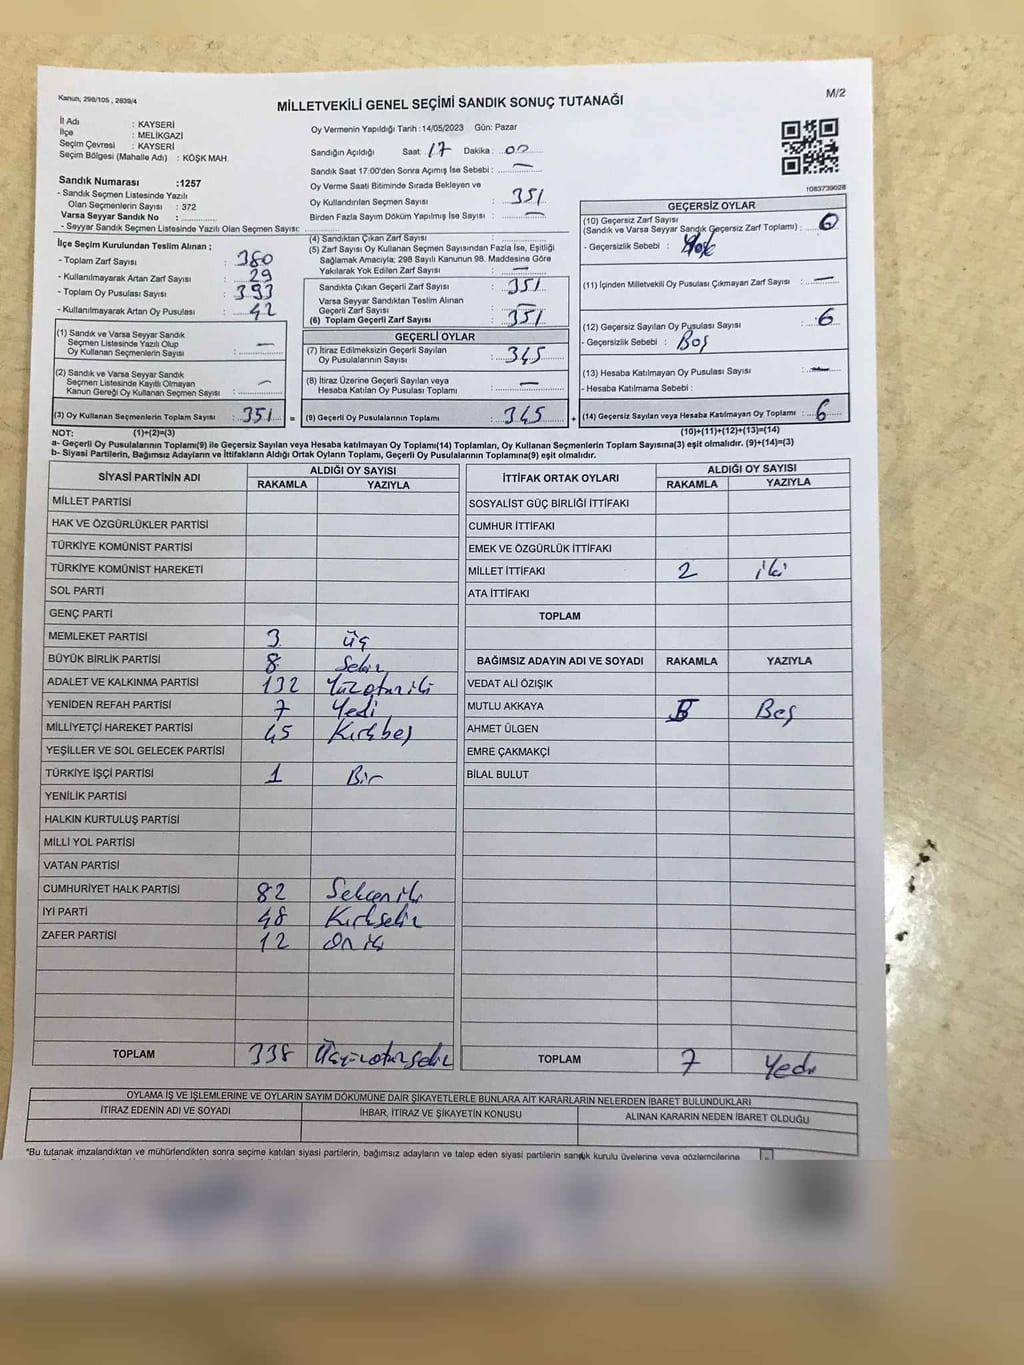 Kanun; 298/105 , 2839/4
M/2
MİLLETVEKİLİ GENEL SEÇİMİ SANDIK SONUÇ TUTANAĞI
İl Adı : KAYSERİ
İlçe : MELİKGAZİ
Seçim Çevresi : KAYSERİ
Seçim Bölgesi (Mahalle Adı) : KÖŞK MAH.
Sandık Numarası :1257
- Sandık Seçmen Listesinde Yazılı
Olan Seçmenlerin Sayısı : 372
Varsa Seyyar Sandık No :
- Seyyar Sandık Seçmen Listesinde Yazılı Olan Seçmen Sayısı:
Oy Vermenin Yapıldığı Tarih :14/05/2023 Gün: Pazar
Sandığın Açıldığı Saat: 17 Dakika : 00
Sandık Saat 17:00'den Sonra Açımış İse Sebebi : —
Oy Verme Saati Bitiminde Sırada Bekleyen ve
Oy Kullandırılan Seçmen Sayısı : 351
Birden Fazla Sayım Döküm Yapılmış İse Sayısı : —
1083739028
İlçe Seçim Kurulundan Teslim Alınan ;
- Toplam Zarf Sayısı : 380
- Kullanılmayarak Artan Zarf Sayısı : 29
- Toplam Oy Pusulası Sayısı : 393
- Kullanılmayarak Artan Oy Pusulası : 42
(1) Sandık ve Varsa Seyyar Sandık
Seçmen Listesinde Yazılı Olup
Oy Kullanan Seçmenlerin Sayısı : —
(2) Sandık ve Varsa Seyyar Sandık
Seçmen Listesinde Kayıtlı Olmayan
Kanun Gereği Oy Kullanan Seçmen Sayısı : —
(3) Oy Kullanan Seçmenlerin Toplam Sayısı : 351 =
(4) Sandıktan Çıkan Zarf Sayısı :
(5) Zarf Sayısı Oy Kullanan Seçmen Sayısından Fazla İse, Eşitliği
Sağlamak Amacıyla; 298 Sayılı Kanunun 98. Maddesine Göre
Yakılarak Yok Edilen Zarf Sayısı : —
Sandıkta Çıkan Geçerli Zarf Sayısı : 351
Varsa Seyyar Sandıktan Teslim Alınan
Geçerli Zarf Sayısı : —
(6) Toplam Geçerli Zarf Sayısı : 351
GEÇERLİ OYLAR
(7) İtiraz Edilmeksizin Geçerli Sayılan
Oy Pusulalarının Sayısı : 345
(8) İtiraz Üzerine Geçerli Sayılan veya
Hesaba Katılan Oy Pusulası Toplamı : —
(9) Geçerli Oy Pusulalarının Toplamı : 345 +
GEÇERSİZ OYLAR
(10) Geçersiz Zarf Sayısı
(Sandık ve Varsa Seyyar Sandık Geçersiz Zarf Toplamı) :
- Geçersizlik Sebebi :
(11) İçinden Milletvekili Oy Pusulası Çıkmayan Zarf Sayısı : —
(12) Geçersiz Sayılan Oy Pusulası Sayısı : 6
- Geçersizlik Sebebi : Boş
(13) Hesaba Katılmayan Oy Pusulası Sayısı : —
- Hesaba Katılmama Sebebi :
(14) Geçersiz Sayılan veya Hesaba Katılmayan Oy Toplamı : 6
NOT: (1)+(2)=(3) (10)+(11)+(12)+(13)=(14)
a- Geçerli Oy Pusulalarının Toplamı(9) ile Geçersiz Sayılan veya Hesaba katılmayan Oy Toplamı(14) Toplamları, Oy Kullanan Seçmenlerin Toplam Sayısına(3) eşit olmalıdır. (9)+(14)=(3)
b- Siyasi Partilerin, Bağımsız Adayların ve İttifakların Aldığı Ortak Oyların Toplamı, Geçerli Oy Pusulalarının Toplamına(9) eşit olmalıdır.
SİYASİ PARTİNİN ADI ALDIĞI OY SAYISI
RAKAMLA YAZIYLA
MİLLET PARTİSİ
HAK VE ÖZGÜRLÜKLER PARTİSİ
TÜRKİYE KOMÜNİST PARTİSİ
TÜRKİYE KOMÜNİST HAREKETİ
SOL PARTİ
GENÇ PARTİ
MEMLEKET PARTİSİ 3 üç
BÜYÜK BİRLİK PARTİSİ 8 Sekiz
ADALET VE KALKINMA PARTİSİ 132 Yüzotuziki
YENİDEN REFAH PARTİSİ 7 Yedi
MİLLİYETÇİ HAREKET PARTİSİ 45 Kırkbeş
YEŞİLLER VE SOL GELECEK PARTİSİ
TÜRKİYE İŞÇİ PARTİSİ 1 Bir
YENİLİK PARTİSİ
HALKIN KURTULUŞ PARTİSİ
MİLLİ YOL PARTİSİ
VATAN PARTİSİ
CUMHURİYET HALK PARTİSİ 82 Seksen iki
İYİ PARTİ 48 Kırksekiz
ZAFER PARTİSİ 12 On iki
TOPLAM 338 Üçyüzotuzsekiz
İTTİFAK ORTAK OYLARI ALDIĞI OY SAYISI
RAKAMLA YAZIYLA
SOSYALİST GÜÇ BİRLİĞİ İTTİFAKI
CUMHUR İTTİFAKI
EMEK VE ÖZGÜRLÜK İTTİFAKI
MİLLET İTTİFAKI 2 iki
ATA İTTİFAKI
TOPLAM
BAĞIMSIZ ADAYIN ADI VE SOYADI RAKAMLA YAZIYLA
VEDAT ALİ ÖZIŞIK
MUTLU AKKAYA 5 Beş
AHMET ÜLGEN
EMRE ÇAKMAKÇİ
BİLAL BULUT
TOPLAM 7 Yedi
OYLAMA İŞ VE İŞLEMLERİNE VE OYLARIN SAYIM DÖKÜMÜNE DAİR ŞİKAYETLERLE BUNLARA AİT KARARLARIN NELERDEN İBARET BULUNDUKLARI
İTİRAZ EDENİN ADI VE SOYADI İHBAR, İTİRAZ VE ŞİKAYETİN KONUSU ALINAN KARARIN NEDEN İBARET OLDUĞU
*Bu tutanak imzalandıktan ve mühürlendikten sonra seçime katılan siyasi partilerin, bağımsız adayların ve talep eden siyasi partilerin sandık kurulu üyelerine veya gözlemcilerine